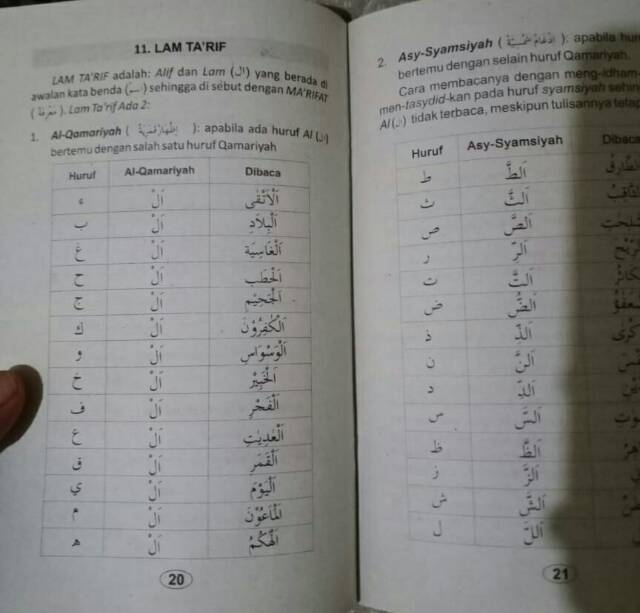 11. LAM TA'RIF
LAM TA'RIF adalah: Alif dan Lam (ال) yang berada di
awalan kata benda (اسم) sehingga di sebut dengan MA'RIFAT
(معرفة). Lam Ta'rif Ada 2:
1. Al-Qamariyah ( إظهار قمرية ): apabila ada huruf Al (ال)
bertemu dengan salah satu huruf Qamariyah
Huruf Al-Qamariyah Dibaca
ء اَلْ اَلْأَتْقَى
ب اَلْ اَلْبِلَادِ
غ اَلْ اَلْغَاشِيَةِ
ح اَلْ اَلْحَطَبِ
ج اَلْ اَلْجَحِيْمِ
ك اَلْ اَلْكٰفِرُوْنَ
و اَلْ اَلْوَسْوَاسِ
خ اَلْ اَلْخَبِيْرُ
ف اَلْ اَلْفَجْرِ
ع اَلْ اَلْعٰدِيٰتِ
ق اَلْ اَلْقَمَرِ
ي اَلْ اَلْيَوْمَ
م اَلْ اَلْمَاعُوْنَ
ه اَلْ
20
2. Asy-Syamsiyah ( إدغام شمسية ): apabila
bertemu dengan selain huruf Qamariyah.
Cara membacanya dengan meng-idham-
men-tasydid-kan pada huruf syamsiyah
Al (ال) tidak terbaca, meskipun tulisannya
Huruf Asy-Syamsiyah
ط اَلطَّ
ث اَلثَّ
ص اَلصَّ
ر اَلرَّ
ت اَلتَّ
ض اَلضُّ
ذ اَلذِّ
ن اَلنَّ
د اَلدِّ
س اَلسَّ
ظ اَلظَّ
ز اَلزَّ
ش اَلشَّ
ل اَللَّ
21